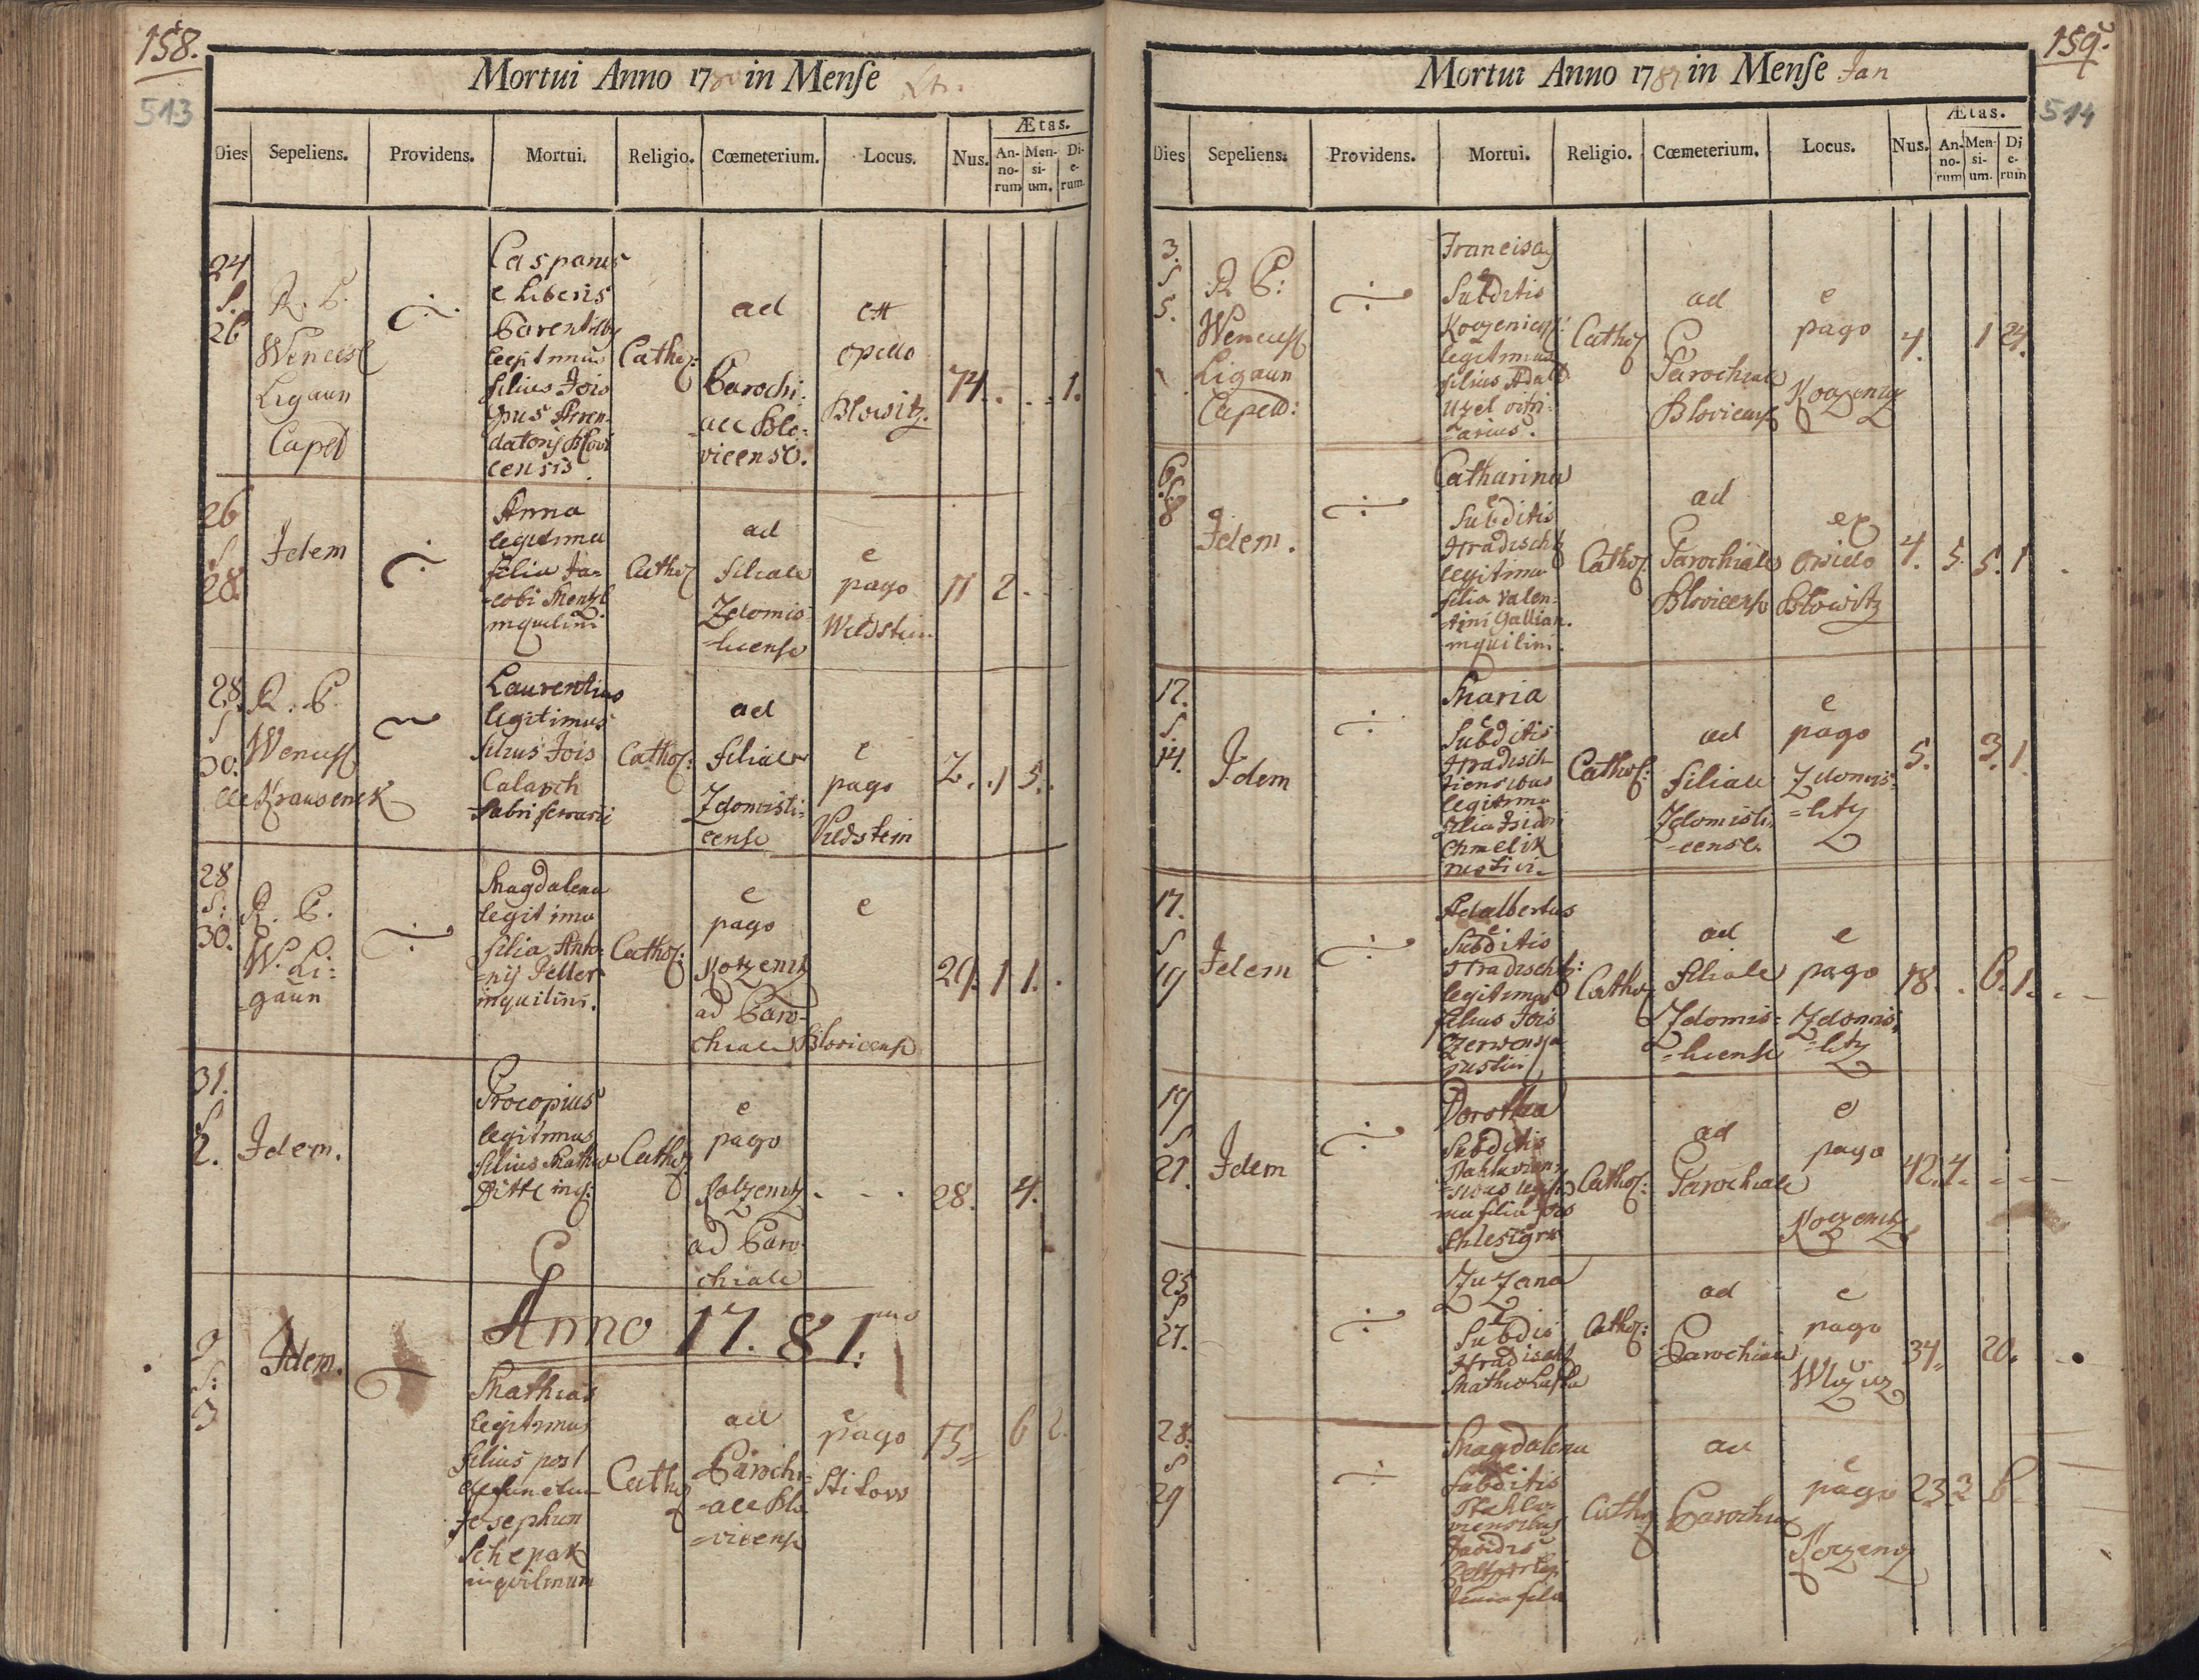 158.
513
Mortui Anno 1780 in Menſe
Dies Sepeliens. Providens. Mortui. Religio. Cœmeterium. Locus. Nus. Ætas. An-norum Men-si-um. Di-e-rum.
24
S.
26
R. P.
Wencesl
Ligaun
Capel
Casparus
e liberis
Parentibus
legitimus
filius Jois
Arren-
datoris Blovi
censis.
Cathol:
ad
Parochi:
ale Blo:
vicense.
ex
opido
Blowitz.
74. . . . 1.
26
S
28.
Idem
Anna
legitima
filia Ja-
=cobi Mentzl
inquilini
Cathol
ad
filiale
Zdomis
=license
e
pago
Wildstein
11 2 -
28.
S
30.
R. P.
Wencesl
de Krausenek
Laurentius
legitimus
filius Jois
Calasch
fabri ferrarii
Cathol:
ad
filiale
Zdomisli:
cense
e
pago
Vildstein
2. . 1 5.
28
S:
30.
R. P.
W. Li=
=gaun
Magdalena
legitima
filia Anto-
=nij Peller
inquilini.
Cathol:
e
pago
Kotzenitz
ad Paro-
chiale Blovicense
e
29. 1 1. .
31.
S
2.
Idem.
Procopius
legitimus
filius Mathiæ
Cathol
e
pago
ad Paro-
chiale
28. 4.
Anno 17.81.mo
S:
3
Idem.
Mathias
legitimus
filius post
defunctum
Josephum
Schepak
inquilinum
Cathol
ad
Parochi=
=ale Blo
=vicense
e
pago
Stitow
15 6 2.
159.
514
Mortui Anno 1781 in Menſe Jan
Dies Sepeliens. Providens. Mortui. Religio. Cœmeterium. Locus. Nus. Ætas. An-no-rum Men-si-um. Di-e-rum
3.
S
5.
R P:
Wencesl
Ligaun
Capell:
Franciscus
e
Subditis
legitimus
filius Adalb
Uzel vitri:
=arius.
Cathol
ad
Parochiale
Blovicense
e
pago
4. 1 24.
6.
S
8
Idem.
Catharina
e
Subditis
Hradischt
legitima
filia Valen=
=tini Gallian.
inquilini.
Cathol
ad
Parochiale
Blovicense
ex
opido
Blowitz
4. 5. 5. 1
12.
S.
14.
Idem
Maria
e
Subditis
Hradisch
tiensibus
legitima
filia Isidori
Chmelik
rustici.
Cathol:
ad
filiale
Zdomisli=
=cense.
e
pago
Zdomis=
=litz
5. 3. 1.
17.
S
19
Idem
Adalbertus
e
Subditis
Hradischt:
legitimus
filius Jois
Czerwenka
rustici
Cathol
ad
filiale
Zdomis=
=license
e
pago
Zdomis=
=litz
18. . 6. 1. . -
19
S
21.
Idem
Dorothea
Subditis
ma filia Jois
Cathol:
ad
Parochiale
e
pago
42. 4. - - -
25
S
27.
Zuzana
e
Subdis
Hradischt
Cathol:
ad
Parochiale
e
pago
34. 20.
28.
S
29
Magdalena
Subditis
viensibus
Davidis
filia
Cathol
ad
Parochial
e
pago
23 2 6